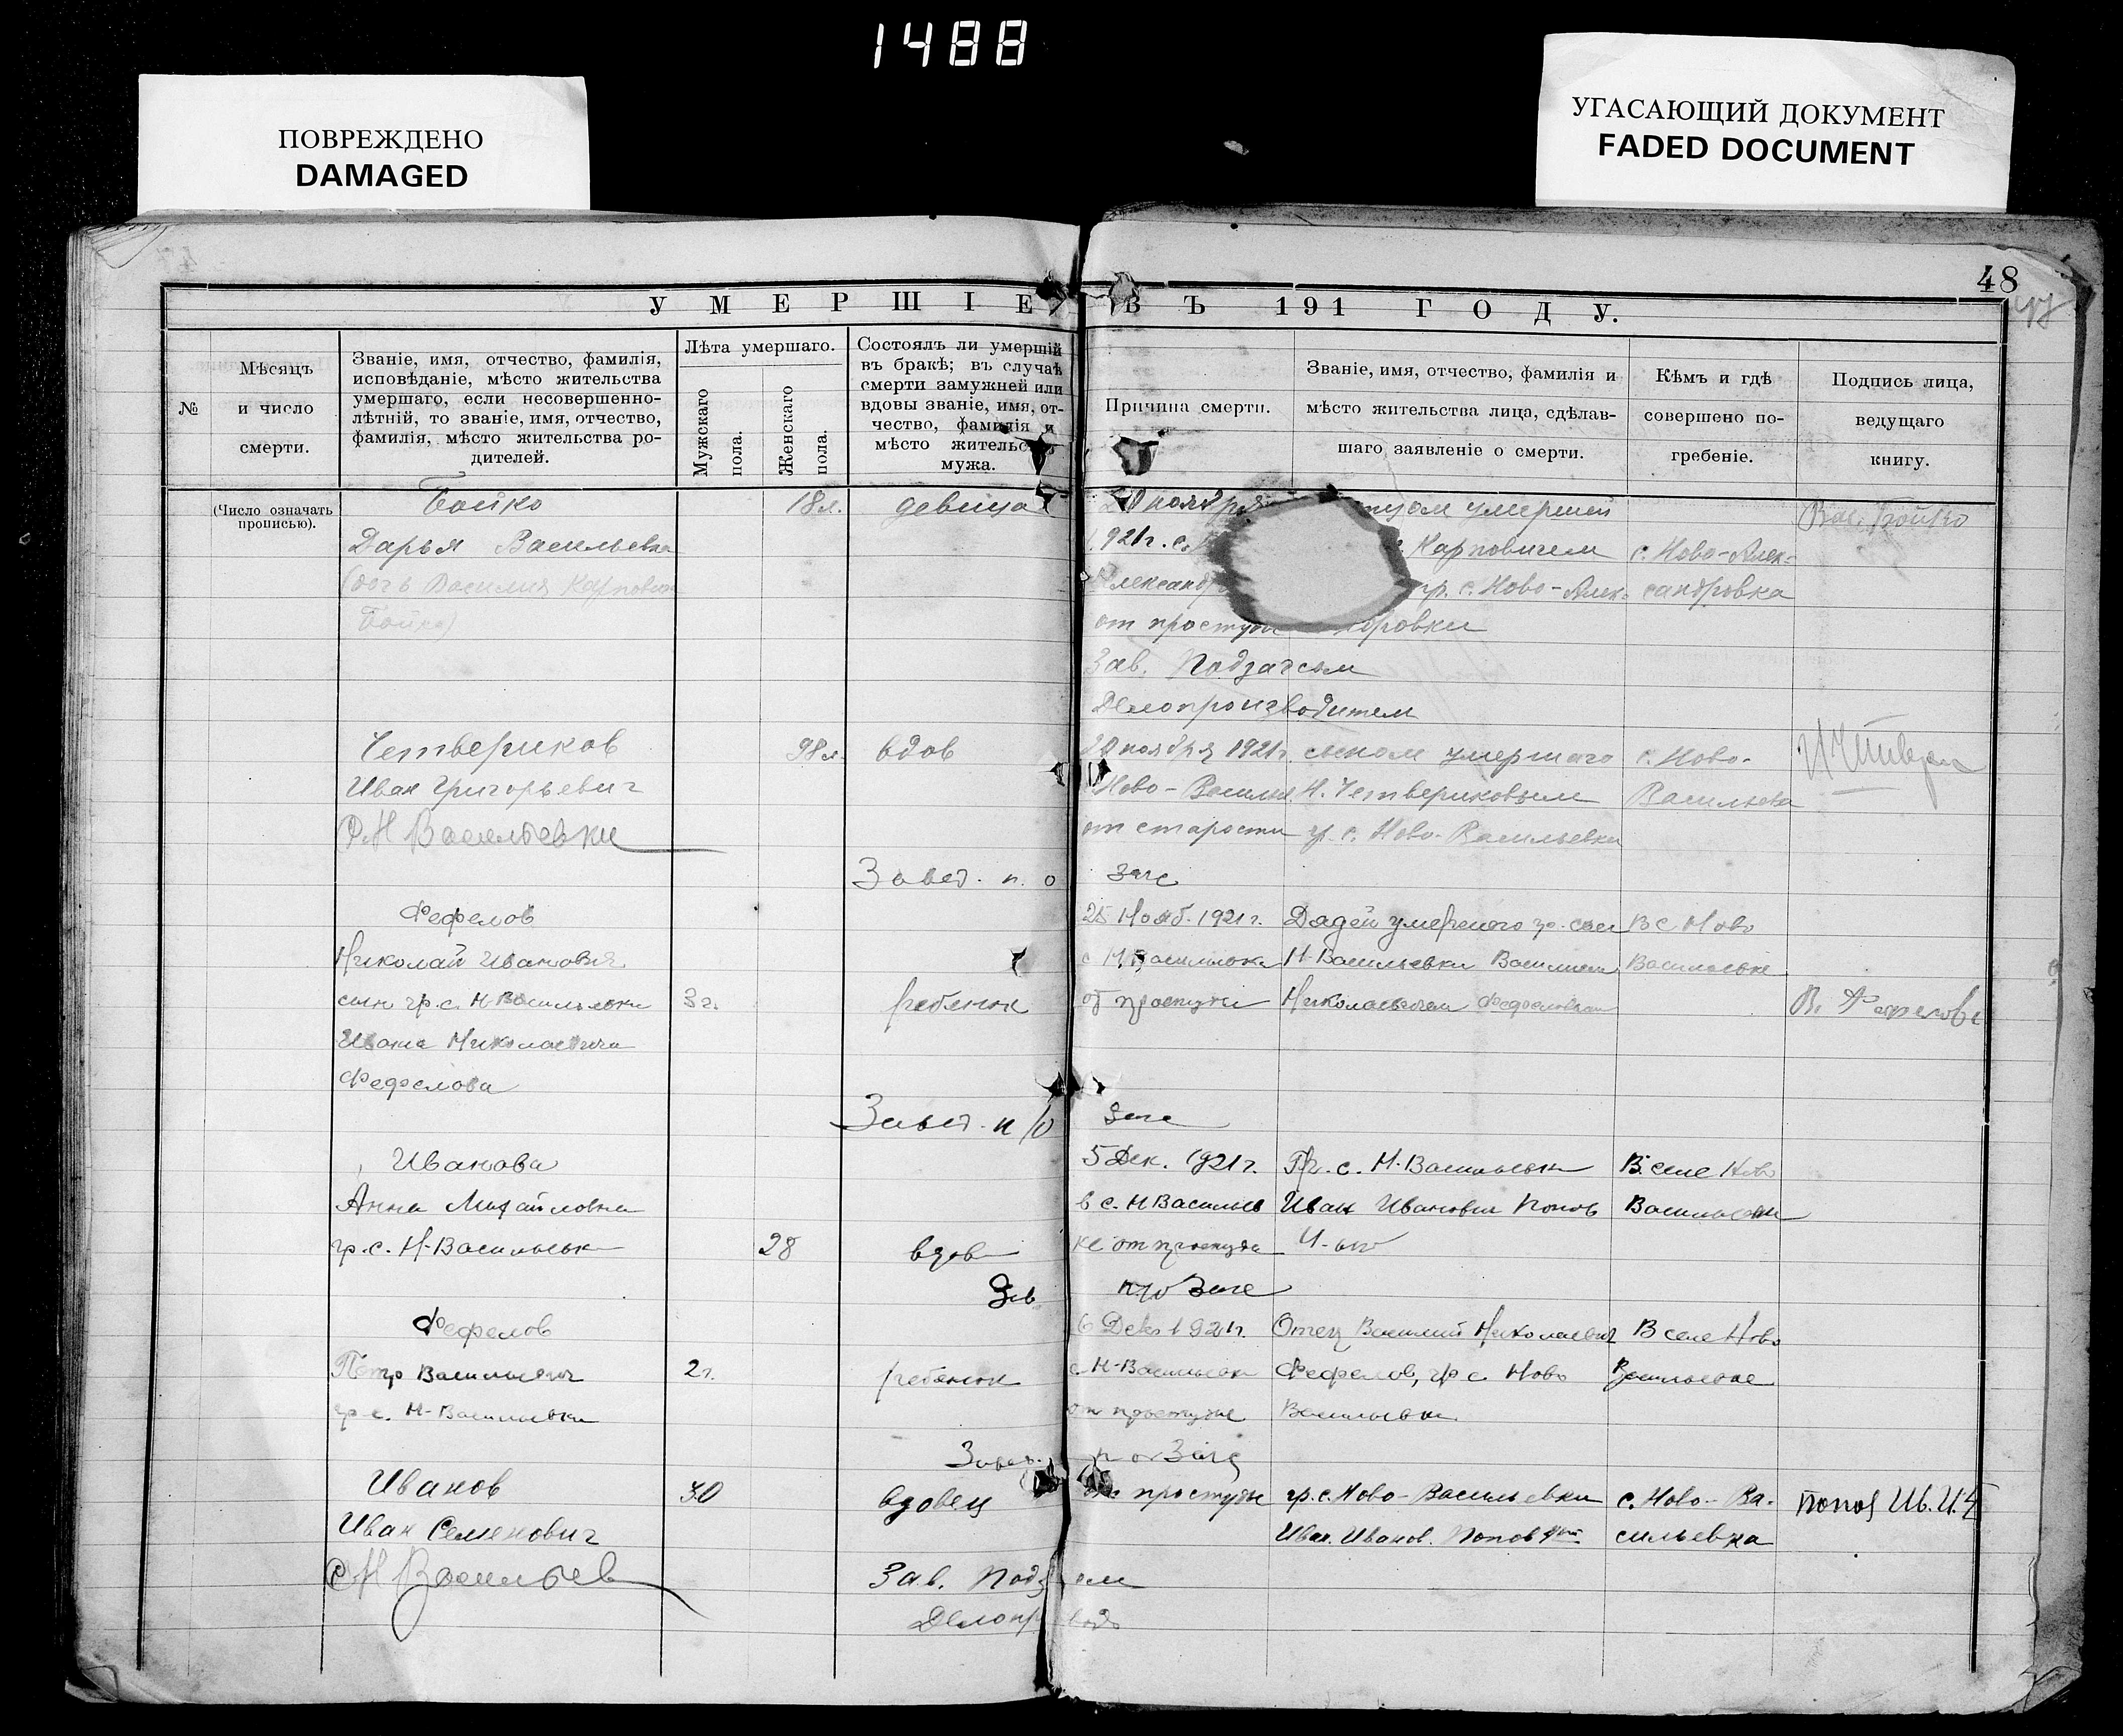 1488
ПОВРЕЖДЕНО
DAMAGED
УГАСАЮЩИЙ ДОКУМЕНТ
FADED DOCUMENT
48
УМЕРШІЕ ВЪ 191 ГОДУ.
№
Мѣсяцъ
и число
смерти.
Званіе, имя, отчество, фамилія,
исповѣданіе, мѣсто жительства
умершаго, если несовершенно-
лѣтній, то званіе, имя, отчество,
фамилія, мѣсто жительства ро-
дителей.
Лѣта умершаго.
Мужскаго
пола.
Женскаго
пола.
Состоялъ ли умершій
въ бракѣ; въ случаѣ
смерти замужней или
вдовы званіе, имя, от-
чество, фамилія и
мѣсто жительс
мужа.
Причина смерти.
Званіе, имя, отчество, фамилія и
мѣсто жительства лица, сдѣлав-
шаго заявленіе о смерти.
Кѣмъ и гдѣ
совершено по-
гребеніе.
Подпись лица,
ведущаго
книгу.
(Число означать
прописью).
Бойко
Дарья Васильевна
(дочь Василия Карповича
Бойко)
18л.
девица
20 ноября
1921г. с.
Александр
от простуды
умершей
Карповичем
гр. с. Ново-Алек-
ровки
с. Ново-Алек-
сандровка
Вас. Бойко
Зав. Подзагсом
Делопроизводитель
Четвериков
Иван Григорьевич
с. Н Васильевки
98л.
вдов
20 ноября 1921г.
Ново-Василье
от старости
сыном умершаго
И. Четвериковым
гр. с. Ново-Васильевки
с. Ново-
Васильевка
Завед. п. о загс
Фефелов
Николай Иванович
сын гр. с. Н-Васильевки
Ивана Николаевича
Фефелова
3 г.
ребенок
25 Нояб. 1921 г.
с Н Васильевка
от простуды
Дядей умершего гр. села
Н-Васильевки Василием
Николаевичем Фефеловым
В с Ново
Васильевке
В. Фефелов
Завед. п/о Загс
Иванова
Анна Михайловна
гр. с. Н-Васильевк
28
вдова
5 Дек. 1921 г.
в с. Н Васильев
ке от простуды
Гр. с. Н-Васильевки
Иван Иванович Попов
4-ый
В селе Ново
Васильевки
Зав. п/о Загс
Фефелов
Петр Васильевич
гр. с. Н-Васильевки
2 г.
ребенок
6 Дек 1921 г.
с Н-Васильевки
от простуды
Отец Василий Николаевич
Фефелов, гр с. Ново
Васильевки
В селе Ново
Васильевке
Завед. п о Загс
Иванов
Иван Семенович
с Н Васильев
30
вдовец
от простуды
гр. с. Ново-Васильевки
Иван. Иванов. Попов 4ый
с. Ново-Ва-
сильевка
Попов Ив. И. 4
Зав. Подз
Делопр